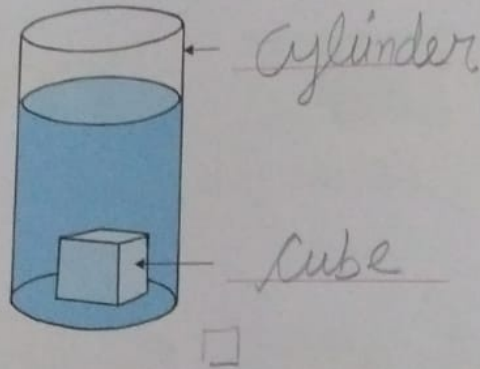 cylinder
cube